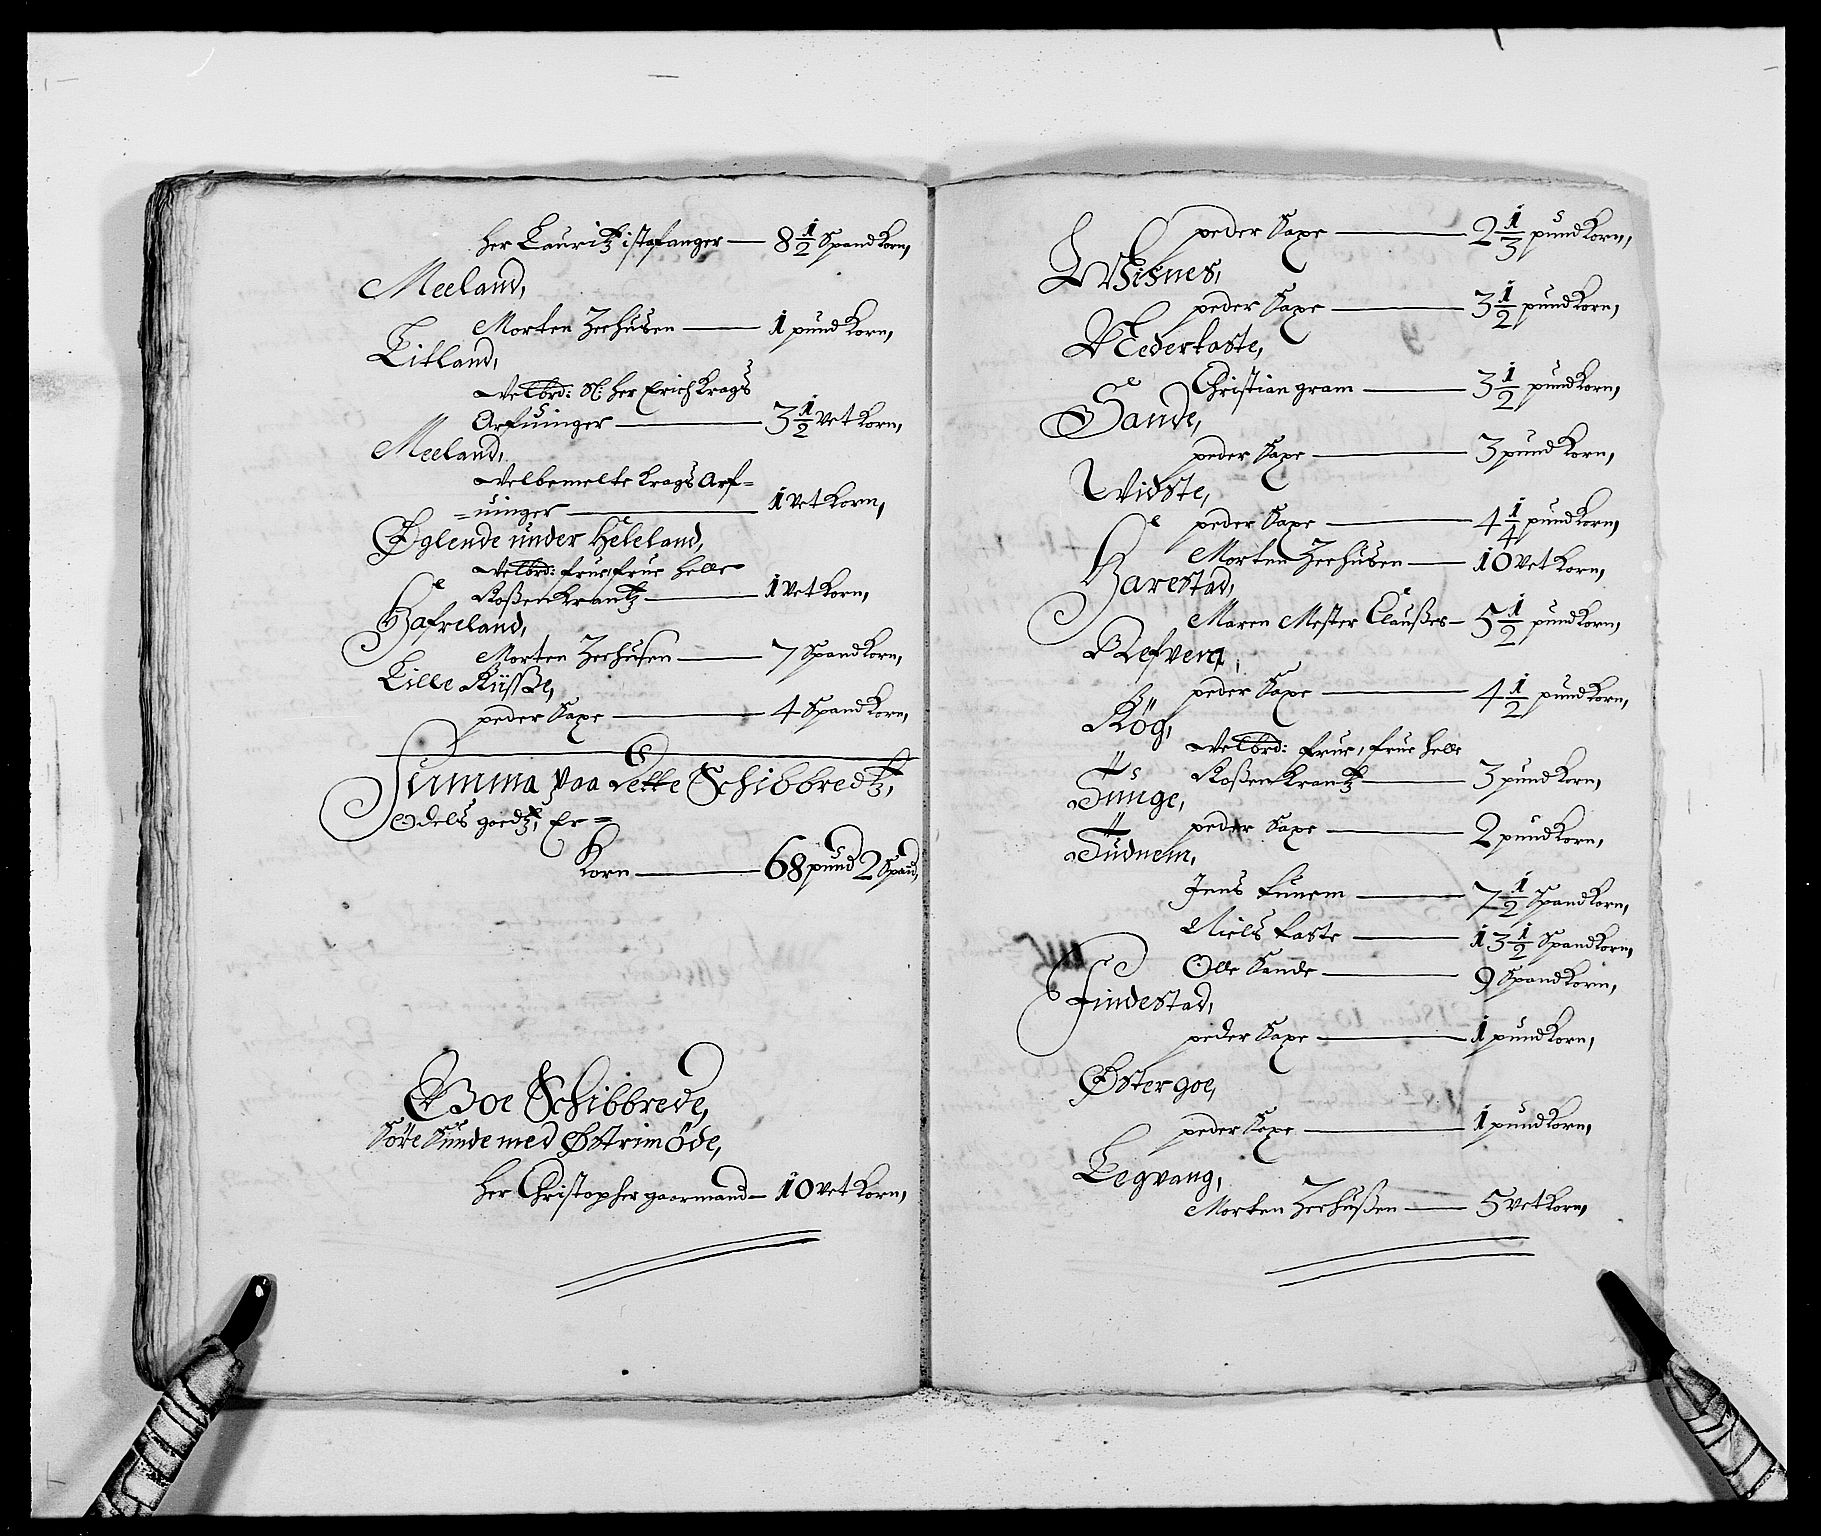 her Lauritz i stafanger — 8 1/2 Spand Korn,
Meeland,
Morten Zeehusen — 1 pund Korn,
Litland,
Velbrd: Sl: her Erich Krags
Arfuinger — 3 1/2 vet Korn,
Meeland,
Velbemelte Krags Arf=
=uinger — 1 vet Korn,
Øglende under Heleland,
Velbrd: frue, frue Helle
Roßenkrantz — 1 vet Korn,
Hafreland,
Morten Zeehusen — 7 Spand Korn,
Lille Rüsße,
peder Saxe — 4 Spand Korn,
Summa paa dette Schibbredtz,
Odels goedtz, Er=
Korn — 68 pund 2 Spand,
Boe Schibbrede,
Søre Sunde med Østrimöde,
her Christopher gaarmand — 10 vet Korn,
peder Saxe — 2 1/3 pund Korn,
Visnes,
peder Saxe — 3 1/2 pund Korn,
Nedertaste,
Christian gram — 3 1/2 pund Korn,
Sande,
peder Saxe — 3 pund Korn,
Vidste,
peder Saxe — 4 1/4 pund Korn,
Morten Zeehusen — 10 vet Korn,
Harestad,
Maren Mester Claußes — 5 1/2 pund Korn,
Refvem,
peder Saxe — 4 1/2 pund Korn,
Røg,
Velbrd: frue, frue Helle
Roßenkrantz — 3 pund Korn,
Tunge,
peder Saxe — 2 pund Korn,
Tüdnem,
Jens Tunem — 7 1/2 Spand Korn,
Niels taste — 13 1/2 Spand Korn,
Olle Sande — 9 Spand Korn,
Findestad,
peder Saxe — 1 pund Korn,
Østergoe,
peder Saxe — 1 pund Korn,
Legvang,
Morten Zeehußen — 5 vet Korn,